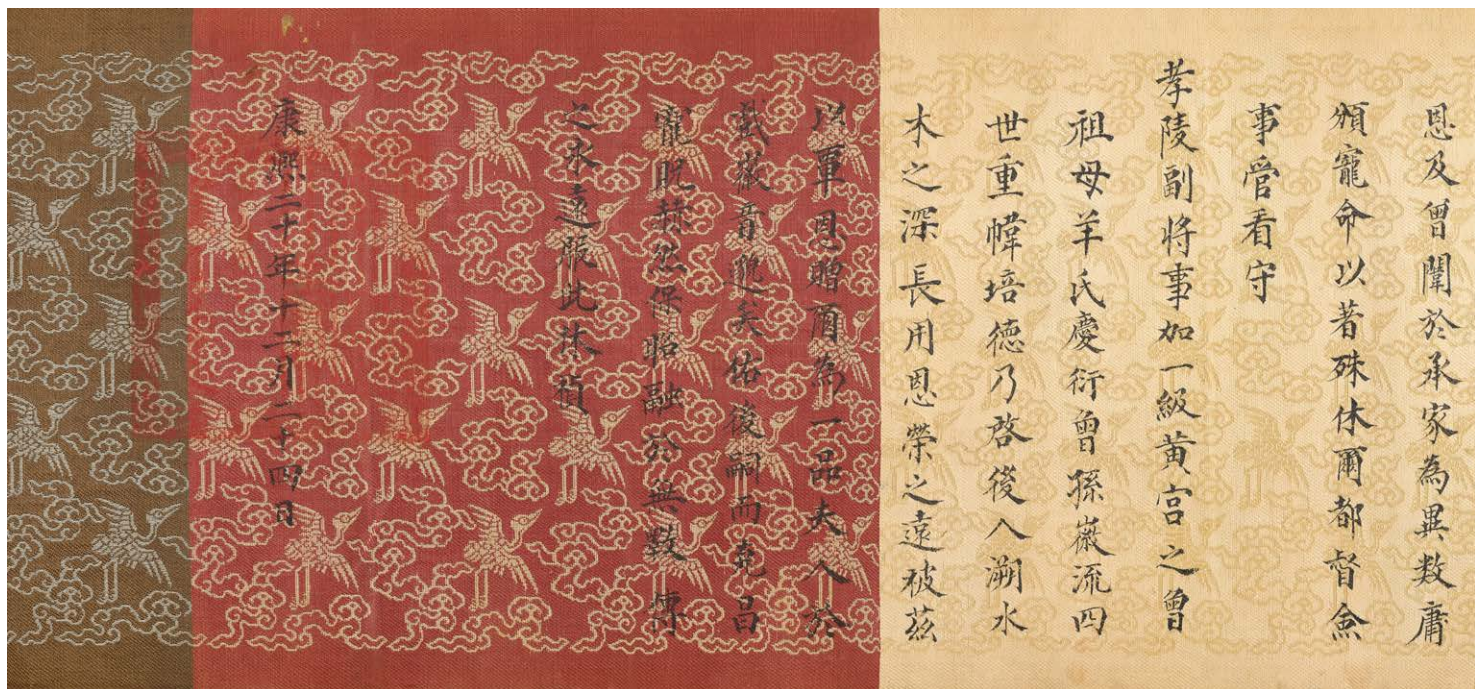 恩及曾闈於承家為異数庸
頒寵命以著殊休爾都督僉
事管看守
孝陵副将事加一級黄宫之曾
祖母羊氏慶衍曾孫徽流四
世重幃培德乃啓後人溯水
木之深長用恩榮之遠被茲
以覃恩贈爾為一品夫人於
戲徽音邈矣佑後嗣而克昌
寵貺赫然保昭融於無斁傳
之永遠服此休禎
康熙二十年十二月二十四日